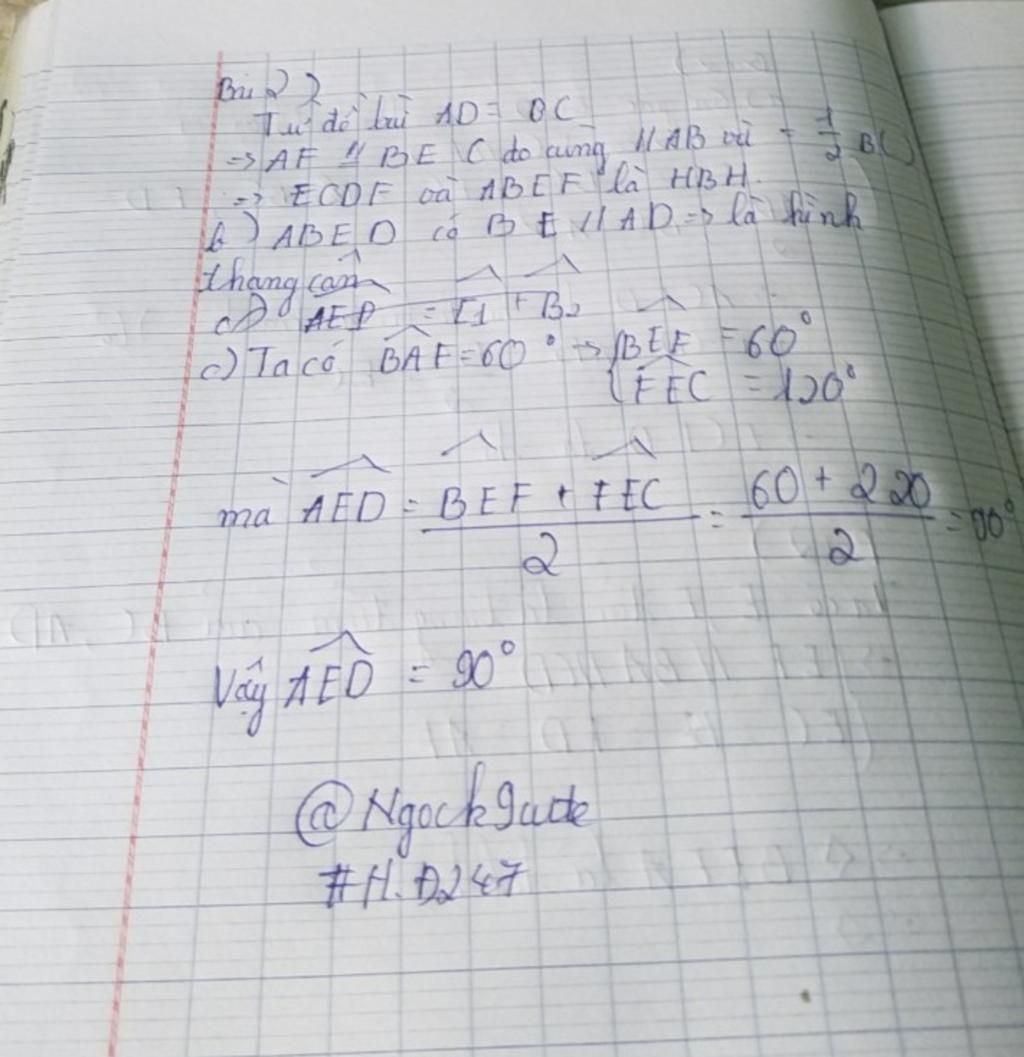 Bài 2)
Từ đề bài AD = BC
=> AF // BE ( do cùng // AB và = 1/2 BC)
=> ECDF và ABEF là HBH.
b) ABED có BE // AD => là hình
thang cân
c) AED = E1 + B2
c) Ta có BAF = 60° => { BEF = 60°
{ FEC = 120°
mà AED = (BEF + FEC)/2 = (60 + 220)/2 = 90°
Vậy AED = 90°
@Ngock9ude
#H.Đ247